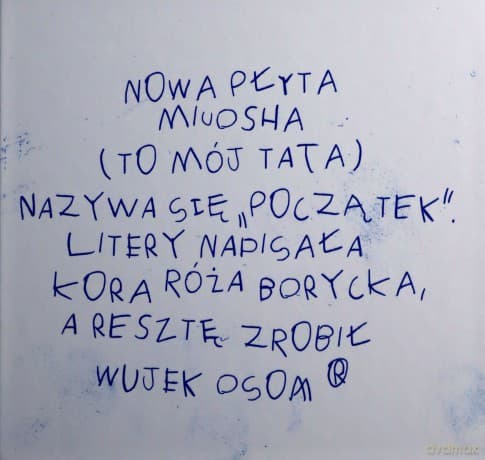 NOWA PŁYTA
MIUOSHA
(TO MÓJ TATA)
NAZYWA SIĘ „POCZĄTEK".
LITERY NAPISAŁA
KORA RÓŻA BORYCKA,
A RESZTĘ ZROBIŁ
WUJEK OSOM ®
dvdmax